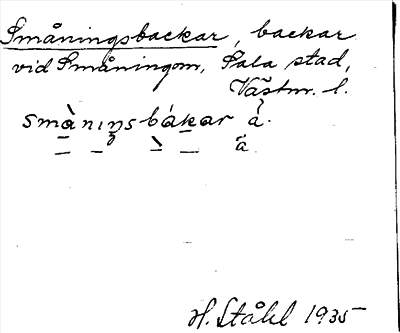 Småningsbackar, backar
vid Småningom, Sala stad,
Västm. l.
smànıŋsbákar å.
H. Ståhl 1935